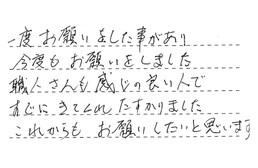 一度お願いをした事があり
今度もお願いをしました
職人さんも感じの良い人で
すぐにきてくれたすかりました
これからもお願いしたいと思います